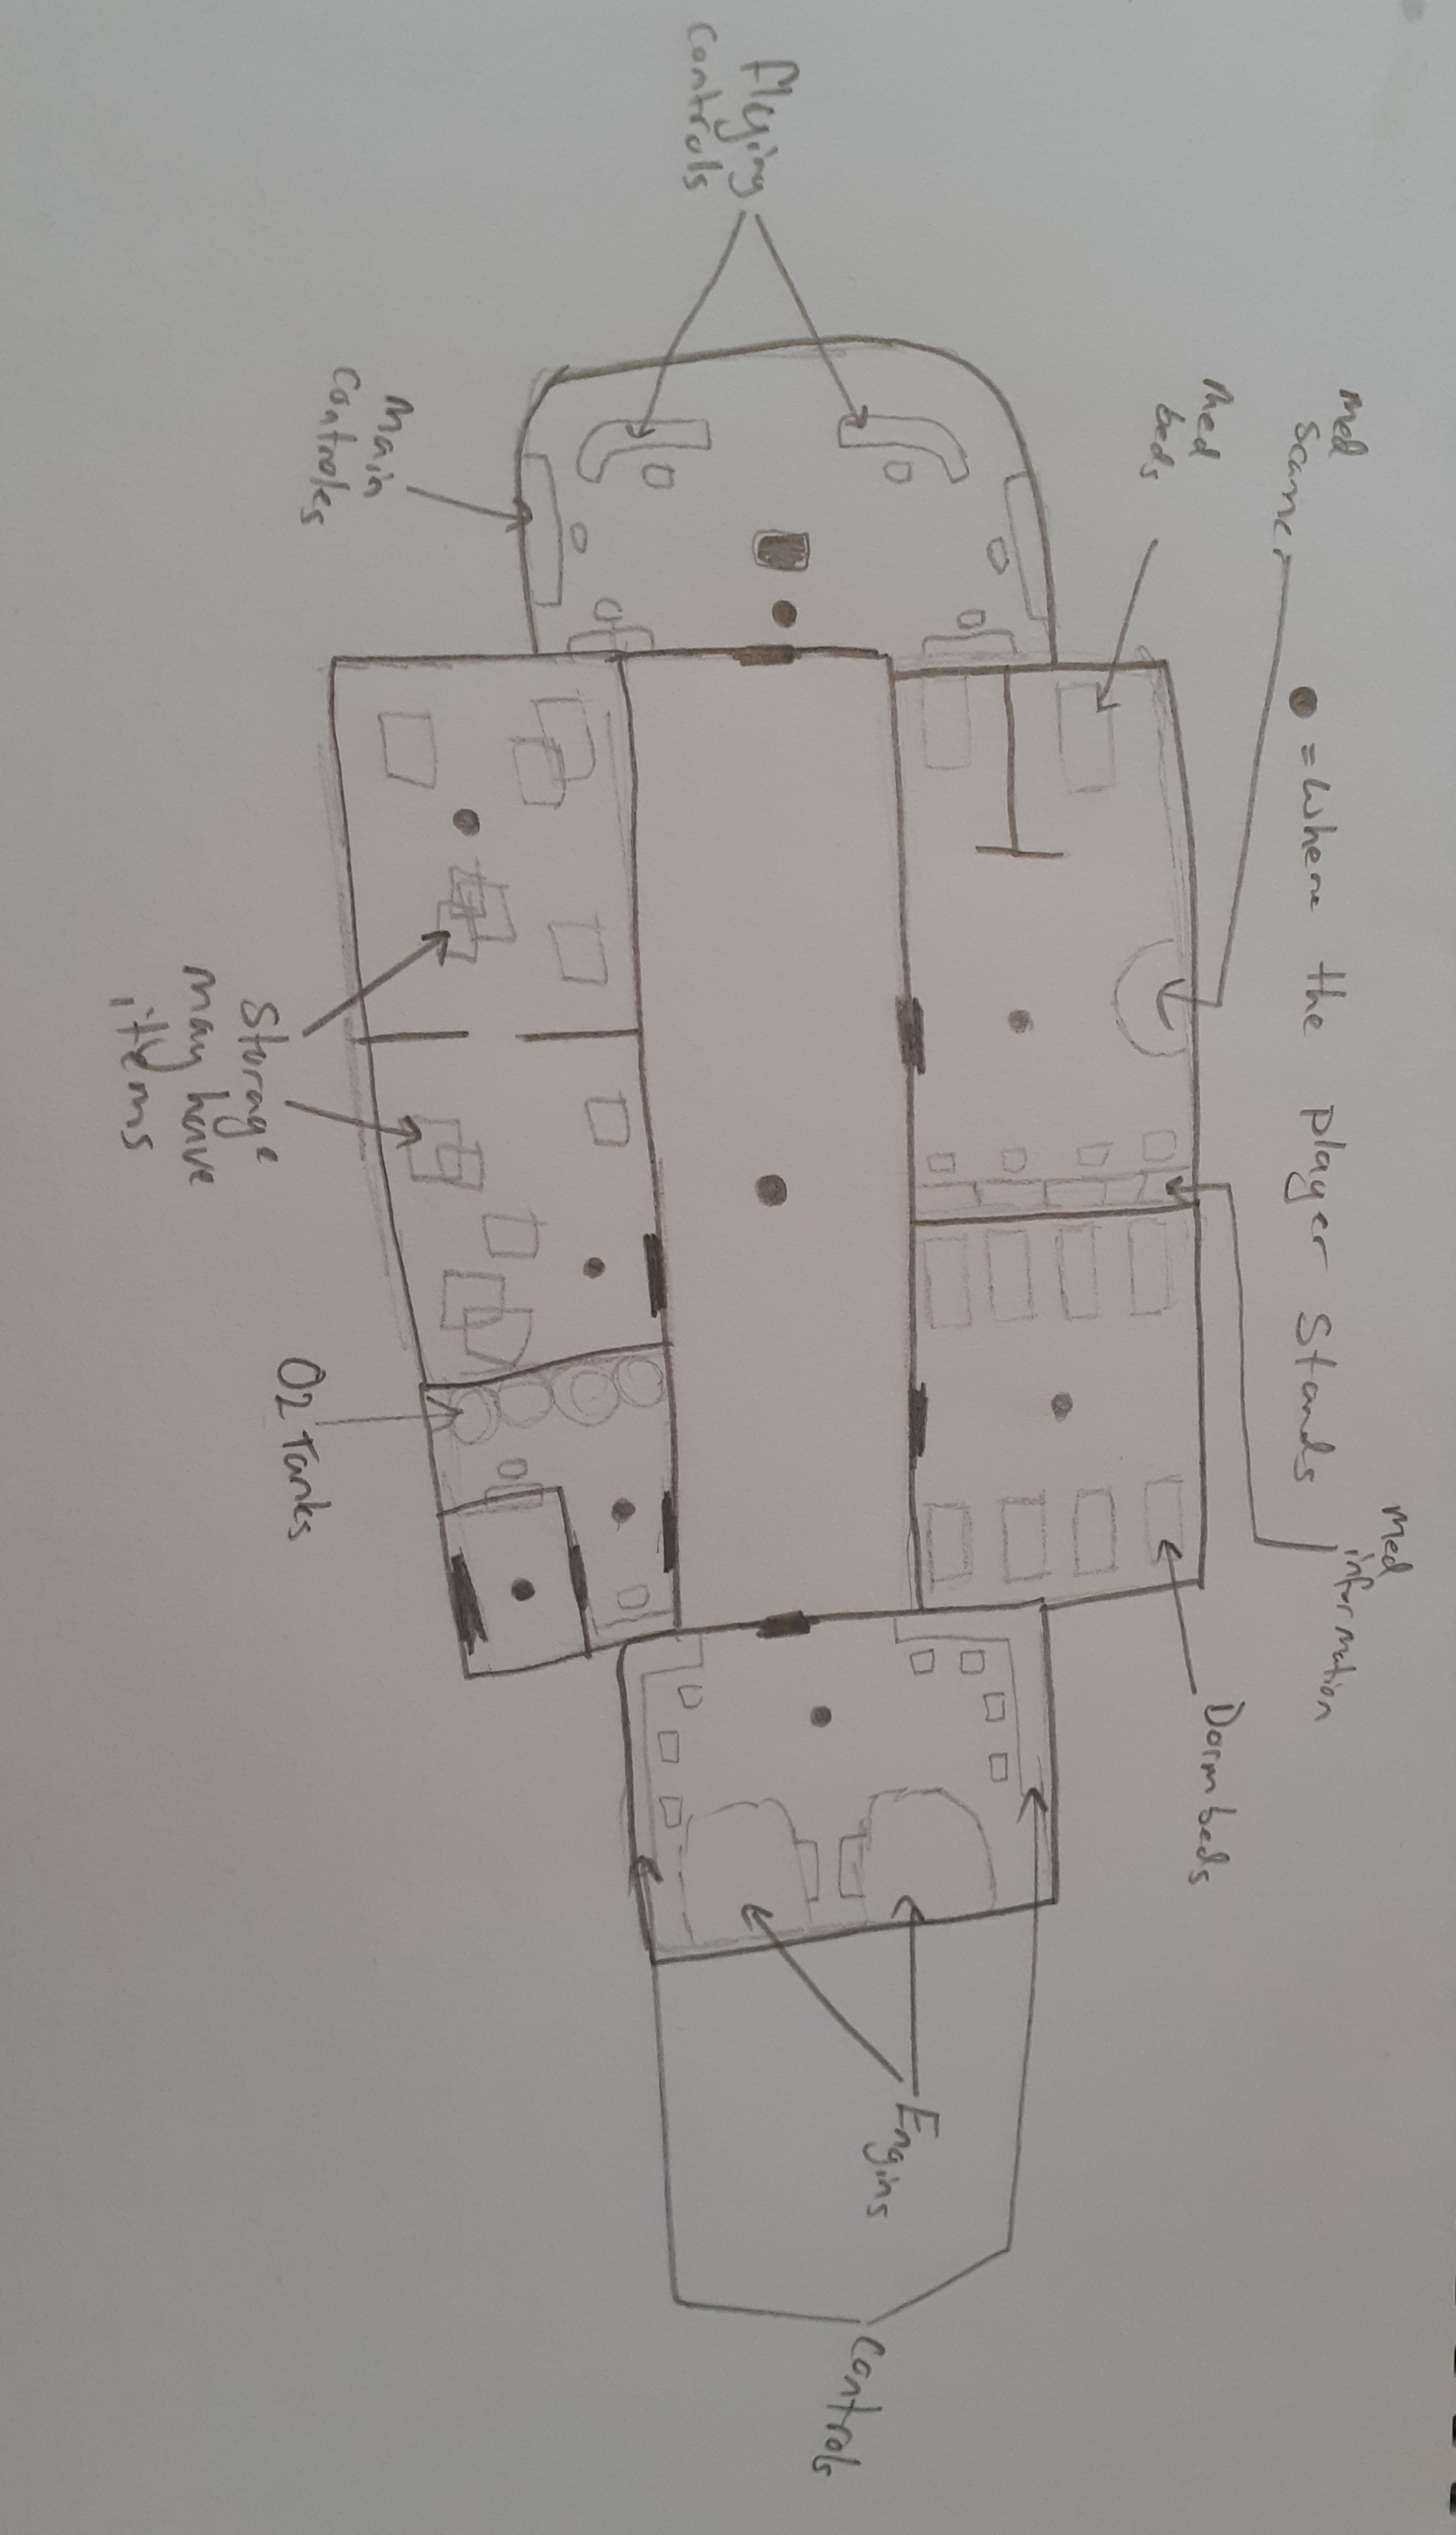 Med
Scanner
● = Where the player Stands
Med
information
Med
beds
Dorm beds
Engins
Controls
Flying
Controls
Main
Controles
Storage
may have
items
O2 Tanks